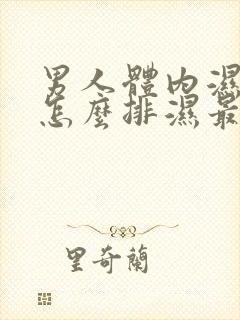 男人體內濕
怎麼排濕最
里奇蘭